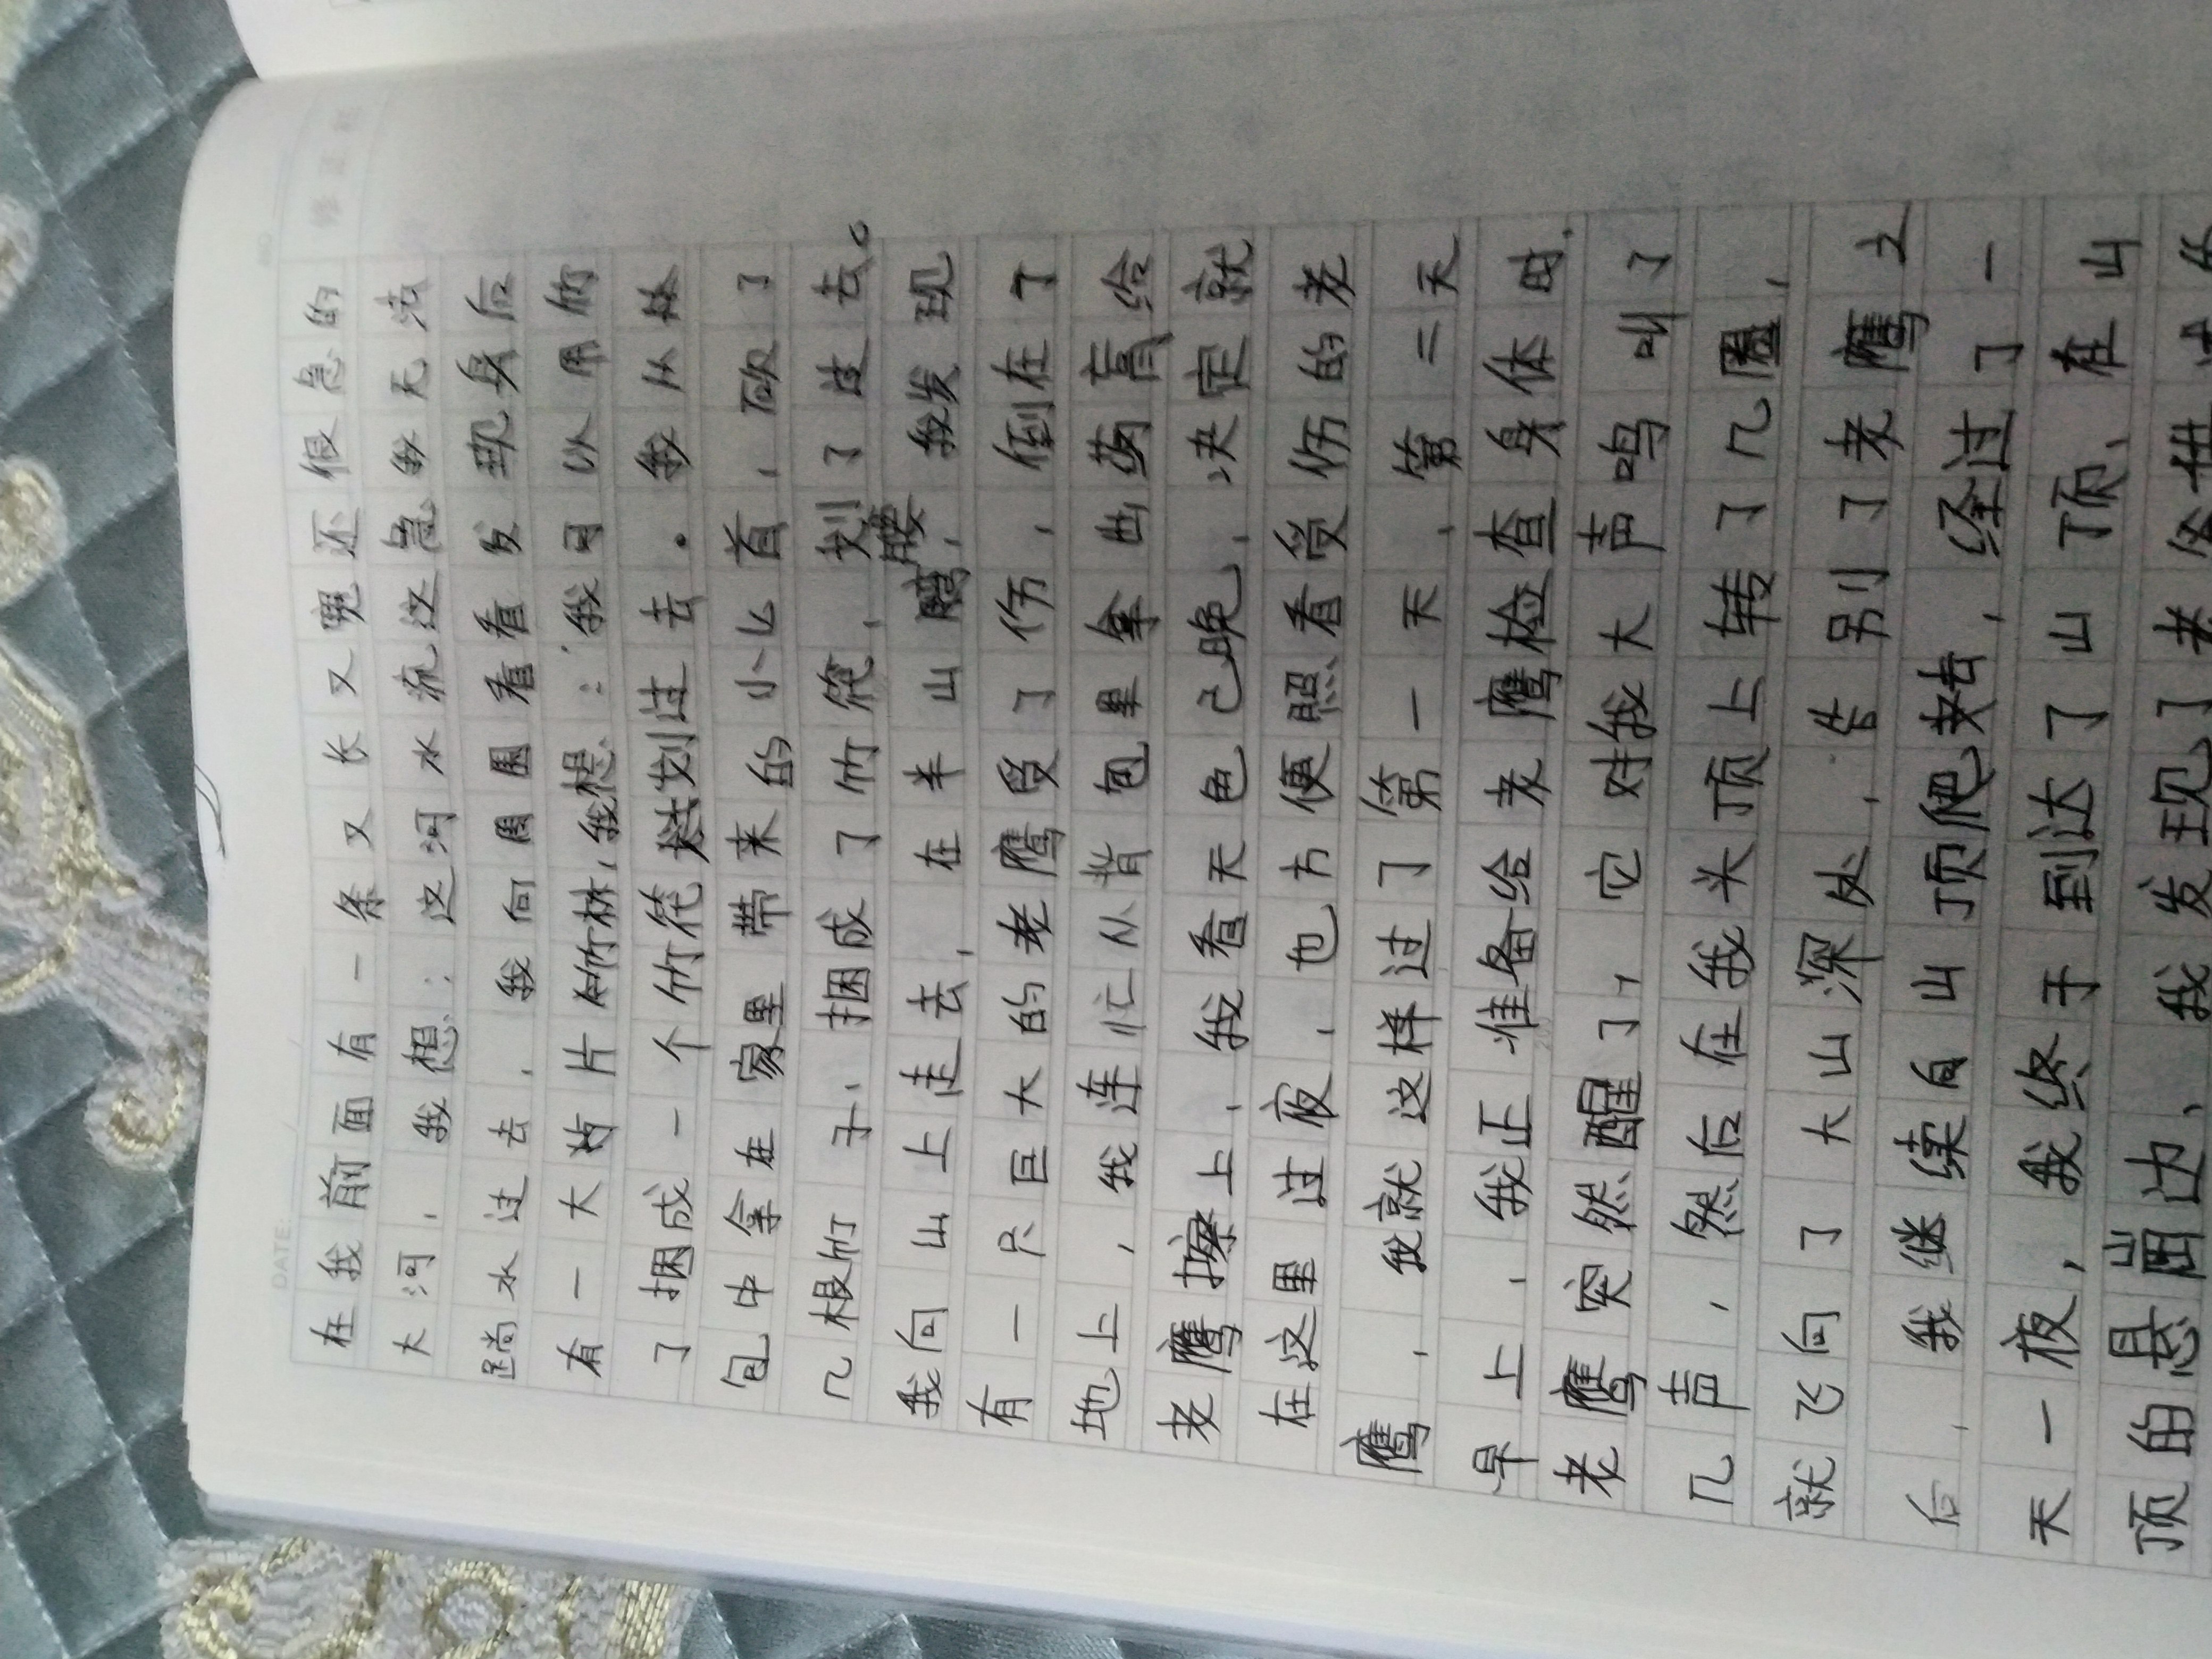 DATE:
在我前面有一条又长又宽还很急的
大河,我想:这河水流这急我无法
趟水过去,我向周围看看发现身后
有一大片竹林,我想:我可以用竹
了捆成一个竹筏划过去.我从林
包中拿在家里带来的小么首,砍了
几根竹子,捆成了竹筏,划了过去。
我向山上走去,在半山腰,我发现
有一只巨大的老鹰受了伤,倒在了
地上,我连忙从背包里拿出药膏给
老鹰擦上,我看天色已晚,决定就
在这里过夜,也方便照看受伤的老
鹰,我就这样过了第一天,第二天
早上,我正准备给老鹰检查身体时.
老鹰突然醒了,它对我大声鸣叫了
几声,然后在我头顶上转了几圈,
就飞向了大山深处,告别了老鹰之
后,我继续向山顶爬去,经过了一
天一夜,我终于到达了山顶,在山
顶的悬崖边,我发现了